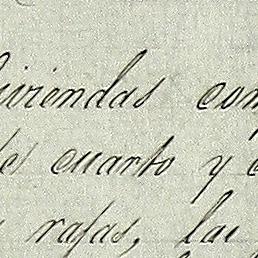 viviendas com
es cuarto y c
rafas, las